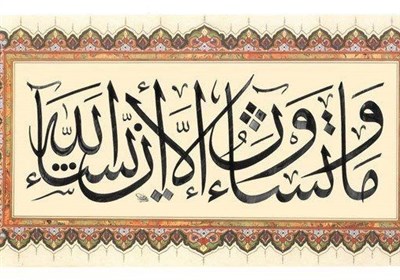 وما تشاءون إلا أن يشاء الله